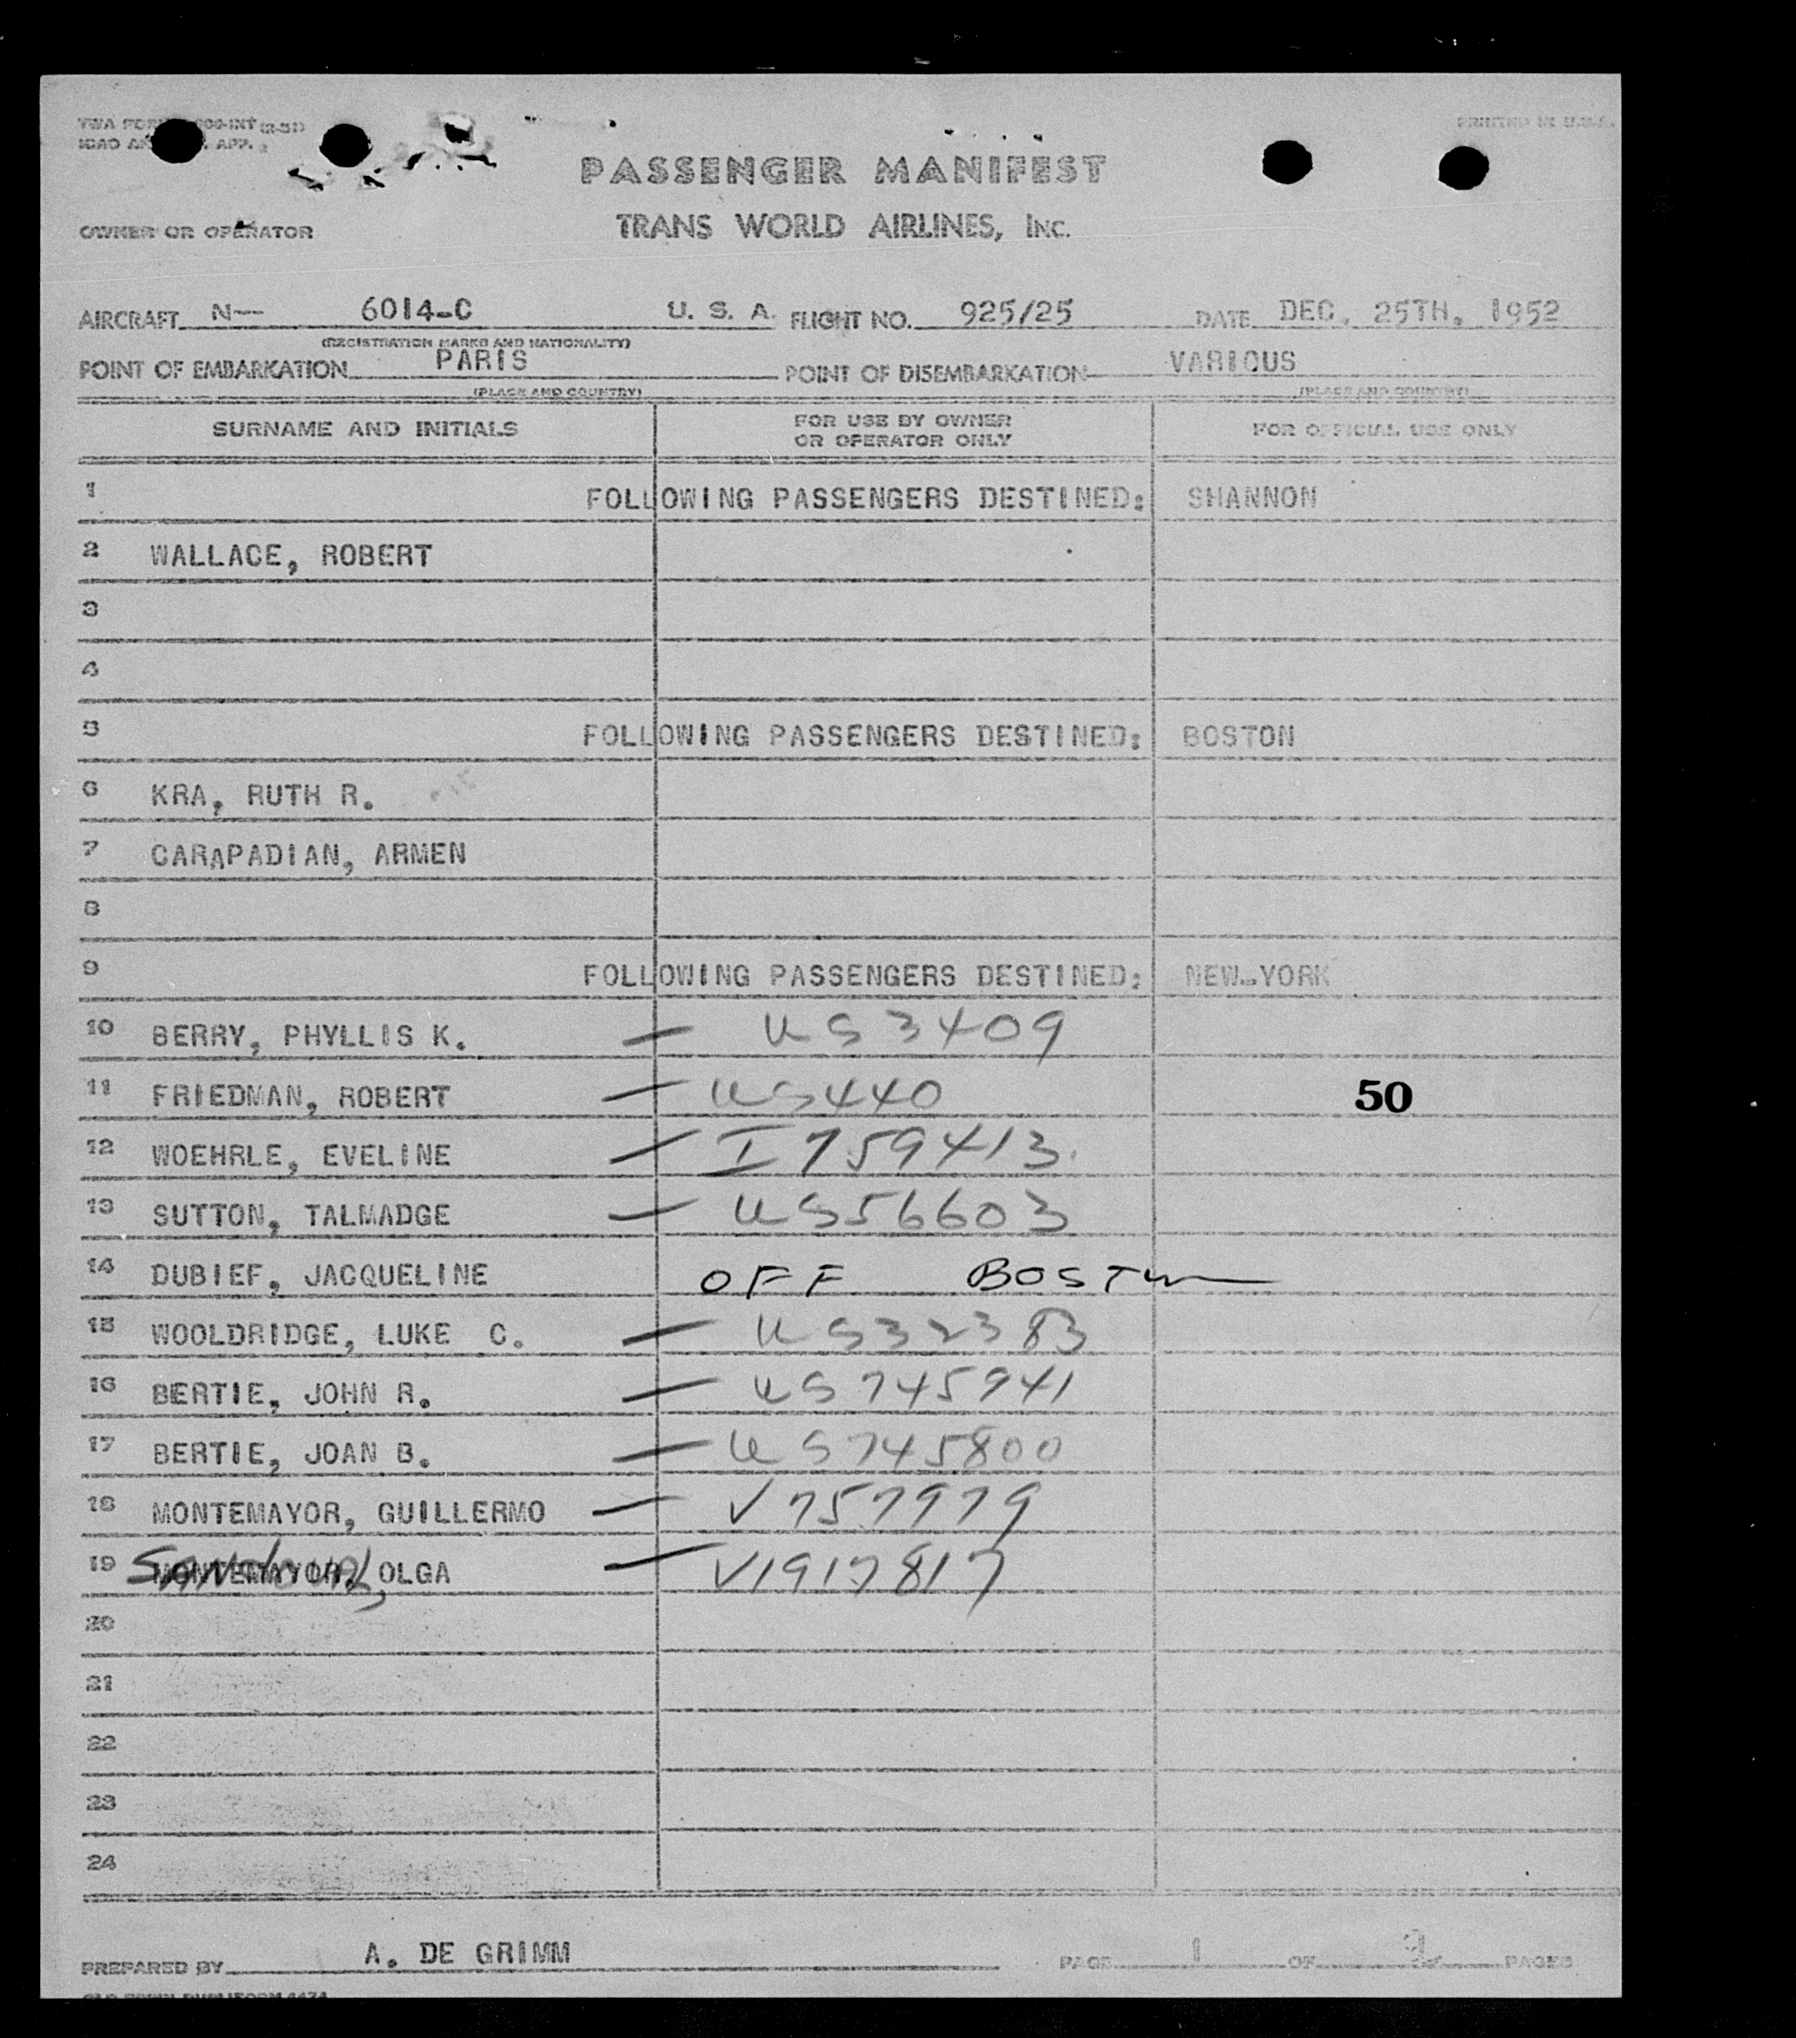 PRINTED IN U.S.A.
PASSENGER MANIFEST
OWNER OR OPERATOR TRANS WORLD AIRLINES, INC.
AIRCRAFT N— 6014-C U. S. A. FLIGHT NO. 925/25 DATE DEC. 25TH. 1952
(REGISTRATION MARKS AND NATIONALITY)
POINT OF EMBARKATION PARIS POINT OF DISEMBARKATION VARIOUS
(PLACE AND COUNTRY) (PLACE AND COUNTRY)
SURNAME AND INITIALS FOR USE BY OWNER OR OPERATOR ONLY FOR OFFICIAL USE ONLY
1 FOLLOWING PASSENGERS DESTINED: SHANNON
2 WALLACE, ROBERT
3
4
5 FOLLOWING PASSENGERS DESTINED: BOSTON
6 KRA, RUTH R.
7 CARAPADIAN, ARMEN
8
9 FOLLOWING PASSENGERS DESTINED: NEW-YORK
10 BERRY, PHYLLIS K. — US 3409
11 FRIEDMAN, ROBERT — US 440 50
12 WOEHRLE, EVELINE — I 759413
13 SUTTON, TALMADGE — US 56603
14 DUBIEF, JACQUELINE OFF BOSTON
15 WOOLDRIDGE, LUKE C. — US 32383
16 BERTIE, JOHN R. — US 745941
17 BERTIE, JOAN B. — US 745800
18 MONTEMAYOR, GUILLERMO — V 757979
19 MONTEMAYOR, Sandoval, OLGA — V1917817
20
21
22
23
24
PREPARED BY A. DE GRIMM PAGE 1 OF PAGES